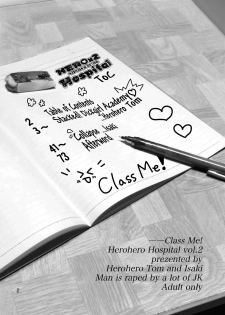 HEROx2
Hospital
ToC
Table of Contents
2 Stacked! Dickgirl Academy
3~ -Herohero Tom
41~ Collapse Isaki
73 Afterword
Class Me!
——Class Me!
Herohero Hospital vol.2
prezented by
Herohero Tom and Isaki
Man is raped by a lot of JK
Adult only
2